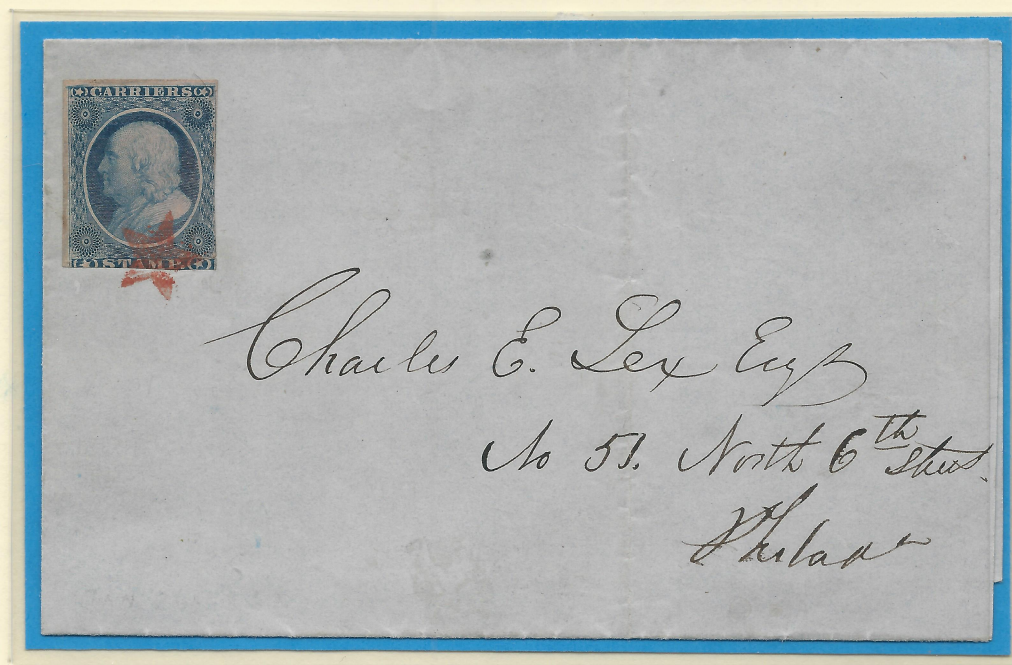 CARRIERS
STAMP
Charles E. Lex Esqr
No 51. North 6th Street.
Philada